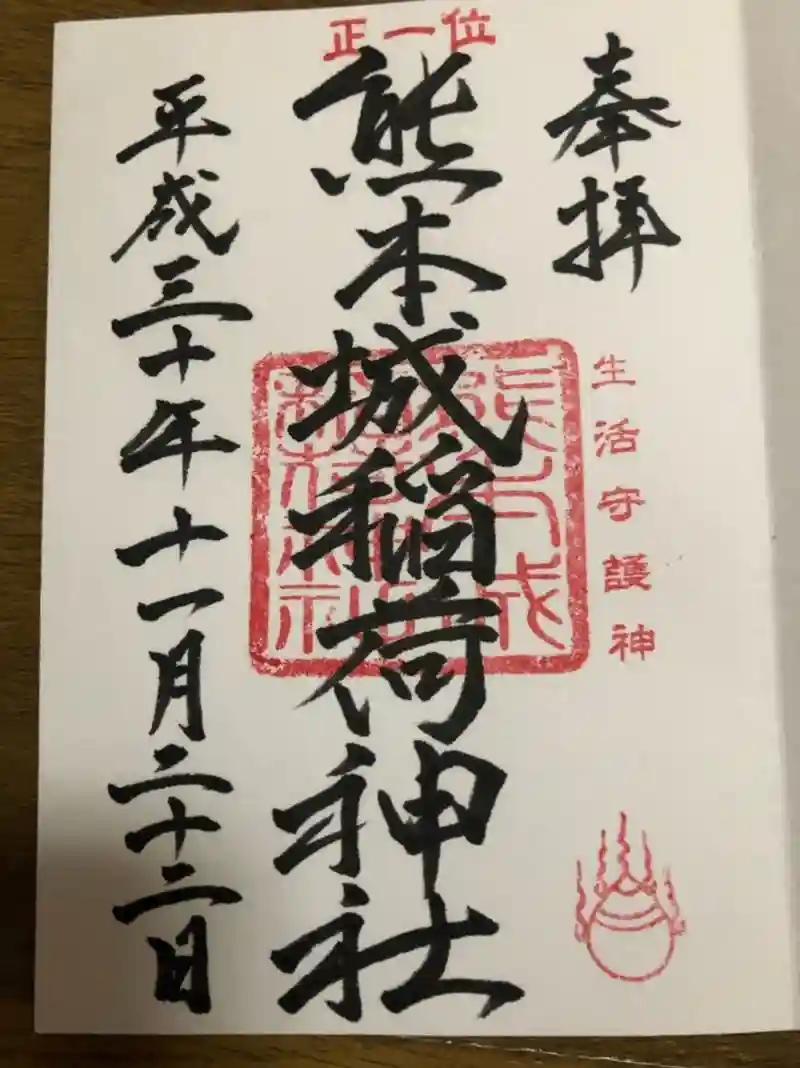 正一位
奉拝
生活守護神
熊本城稲荷神社
熊本城稲荷神社
平成三十年十一月二十二日